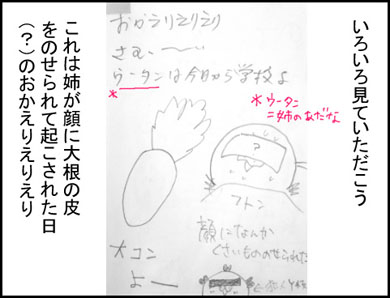 いろいろ見ていただこう
おかえりえりえり
さむ〜い
ウータンは今日から学校よ
*
*ウータン
=姉のあだな
?
フトン
顔になんか
くさいもののせられた
大コン
よー
これは姉が顔に大根の皮
をのせられて起こされた日
(?)のおかえりえりえり